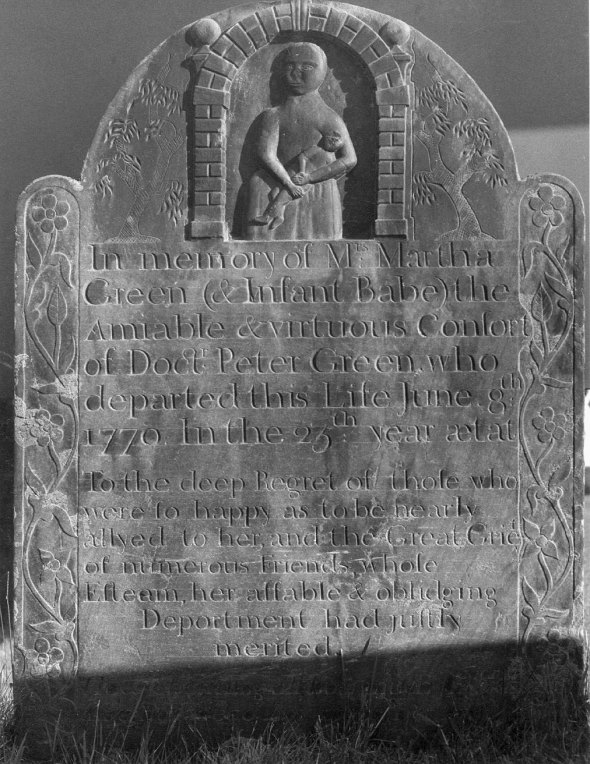 In memory of Mʳˢ Martha
Green (& Infant Babe) the
Amiable & virtuous Conſort
of Doctʳ Peter Green, who
departed this Life June 8ᵗʰ
1770 In the 23ᵗʰ year ætat
To the deep Regret of thoſe who
were ſo happy as to be nearly
allyed to her, and the Great Grief
of numerous Friends, whoſe
Eſteam, her affable & oblidging
Deportment had juſtly
merited.